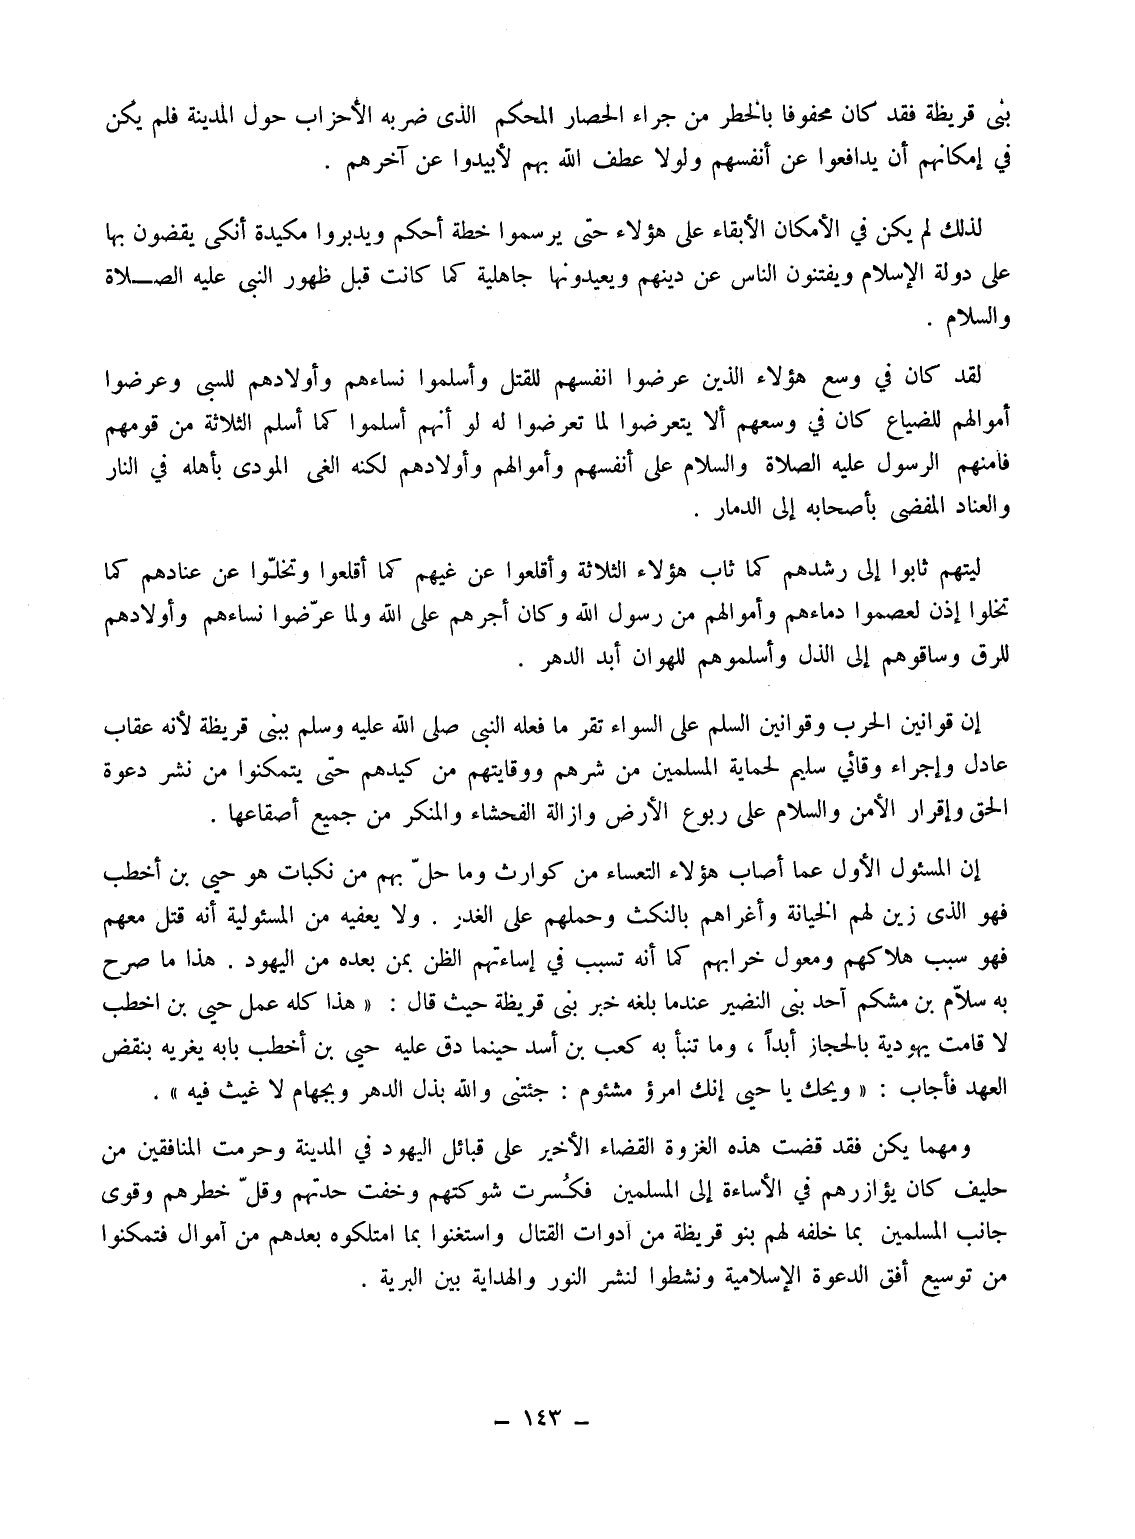 بنى قريظة فقد كان محفوفا بالخطر من جراء الحصار المحكم الذى ضربه الأحزاب حول المدينة فلم يكن
في إمكانهم أن يدافعوا عن أنفسهم ولولا عطف الله بهم لأبيدوا عن آخرهم .
لذلك لم يكن في الأمكان الأبقاء على هؤلاء حتى يرسموا خطة أحكم ويدبروا مكيدة أنكى يقضون بها
على دولة الإسلام ويفتنون الناس عن دينهم ويعيدونها جاهلية كما كانت قبل ظهور النبى عليه الصـــلاة
والسلام .
لقد كان في وسع هؤلاء الذين عرضوا انفسهم للقتل وأسلموا نساءهم وأولادهم للسبى وعرضوا
أموالهم للضياع كان في وسعهم ألا يتعرضوا لما تعرضوا له لو أنهم أسلموا كما أسلم الثلاثة من قومهم
فامنهم الرسول عليه الصلاة والسلام على أنفسهم وأموالهم وأولادهم لكنه الغى المودى بأهله في النار
والعناد المفضى بأصحابه إلى الدمار .
ليتهم ثابوا إلى رشدهم كما ثاب هؤلاء الثلاثة وأقلعوا عن غيهم كما أقلعوا وتخلّوا عن عنادهم كما
تخلوا إذن لعصموا دماءهم وأموالهم من رسول الله وكان أجرهم على الله ولما عرّضوا نساءهم وأولادهم
للرق وساقوهم إلى الذل وأسلموهم للهوان أبد الدهر .
إن قوانين الحرب وقوانين السلم على السواء تقر ما فعله النبى صلى الله عليه وسلم ببنى قريظة لأنه عقاب
عادل وإجراء وقائي سليم لحماية المسلمين من شرهم ووقايتهم من كيدهم حتى يتمكنوا من نشر دعوة
الحق وإقرار الأمن والسلام على ربوع الأرض وازالة الفحشاء والمنكر من جميع أصقاعها .
إن المسئول الأول عما أصاب هؤلاء التعساء من كوارث وما حلّ بهم من نكبات هو حيى بن أخطب
فهو الذى زين لهم الخيانة وأغراهم بالنكث وحملهم على الغدر . ولا يعفيه من المسئولية أنه قتل معهم
فهو سبب هلاكهم ومعول خرابهم كما أنه تسبب في إساءتهم الظن بمن بعده من اليهود . هذا ما صرح
به سلاّم بن مشكم آحد بنى النضير عندما بلغه خبر بنى قريظة حيث قال : « هذا كله عمل حيى بن اخطب
لا قامت يهودية بالحجاز أبداً ، وما تنبأ به كعب بن أسد حينما دق عليه حيى بن أخطب بابه يغريه بنقض
العهد فأجاب : « ويحك يا حيى إنك امرؤ مشئوم : جئتنى والله بذل الدهر وبجهام لا غيث فيه » .
ومهما يكن فقد قضت هذه الغزوة القضاء الأخير على قبائل اليهود في المدينة وحرمت المنافقين من
حليف كان يؤازرهم في الأساءة إلى المسلمين فكُسرت شوكتهم وخفت حدتهم وقلّ خطرهم وقوى
جانب المسلمين بما خلفه لهم بنو قريظة من أدوات القتال واستغنوا بما امتلكوه بعدهم من أموال فتمكنوا
من توسيع أفق الدعوة الإسلامية ونشطوا لنشر النور والهداية بين البرية .
– ١٤٣ –